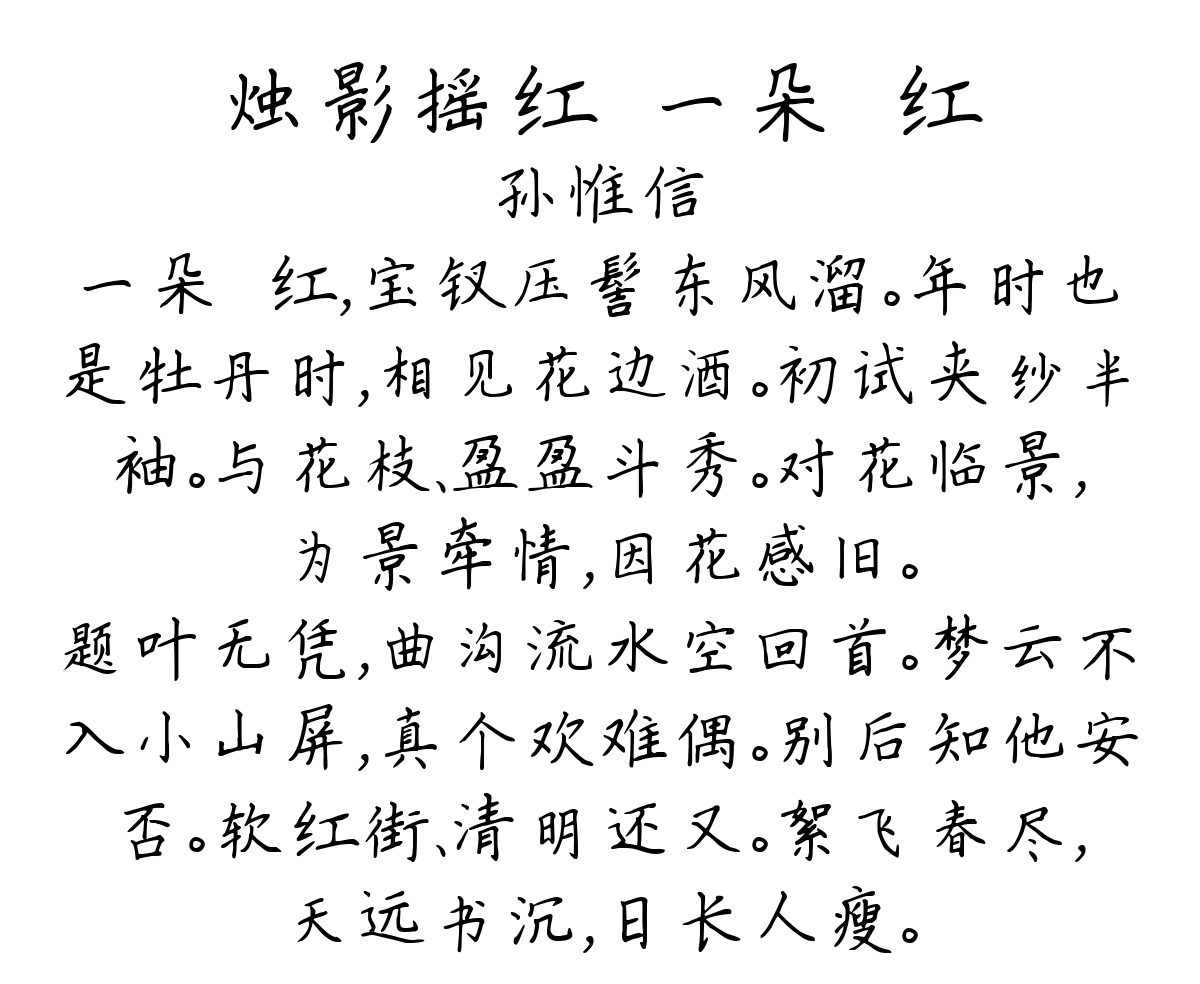 烛影摇红 一朵 红
孙惟信
一朵 红,宝钗压髻东风溜。年时也
是牡丹时,相见花边酒。初试夹纱半
袖。与花枝、盈盈斗秀。对花临景,
为景牵情,因花感旧。
题叶无凭,曲沟流水空回首。梦云不
入小山屏,真个欢难偶。别后知他安
否。软红街、清明还又。絮飞春尽,
天远书沉,日长人瘦。